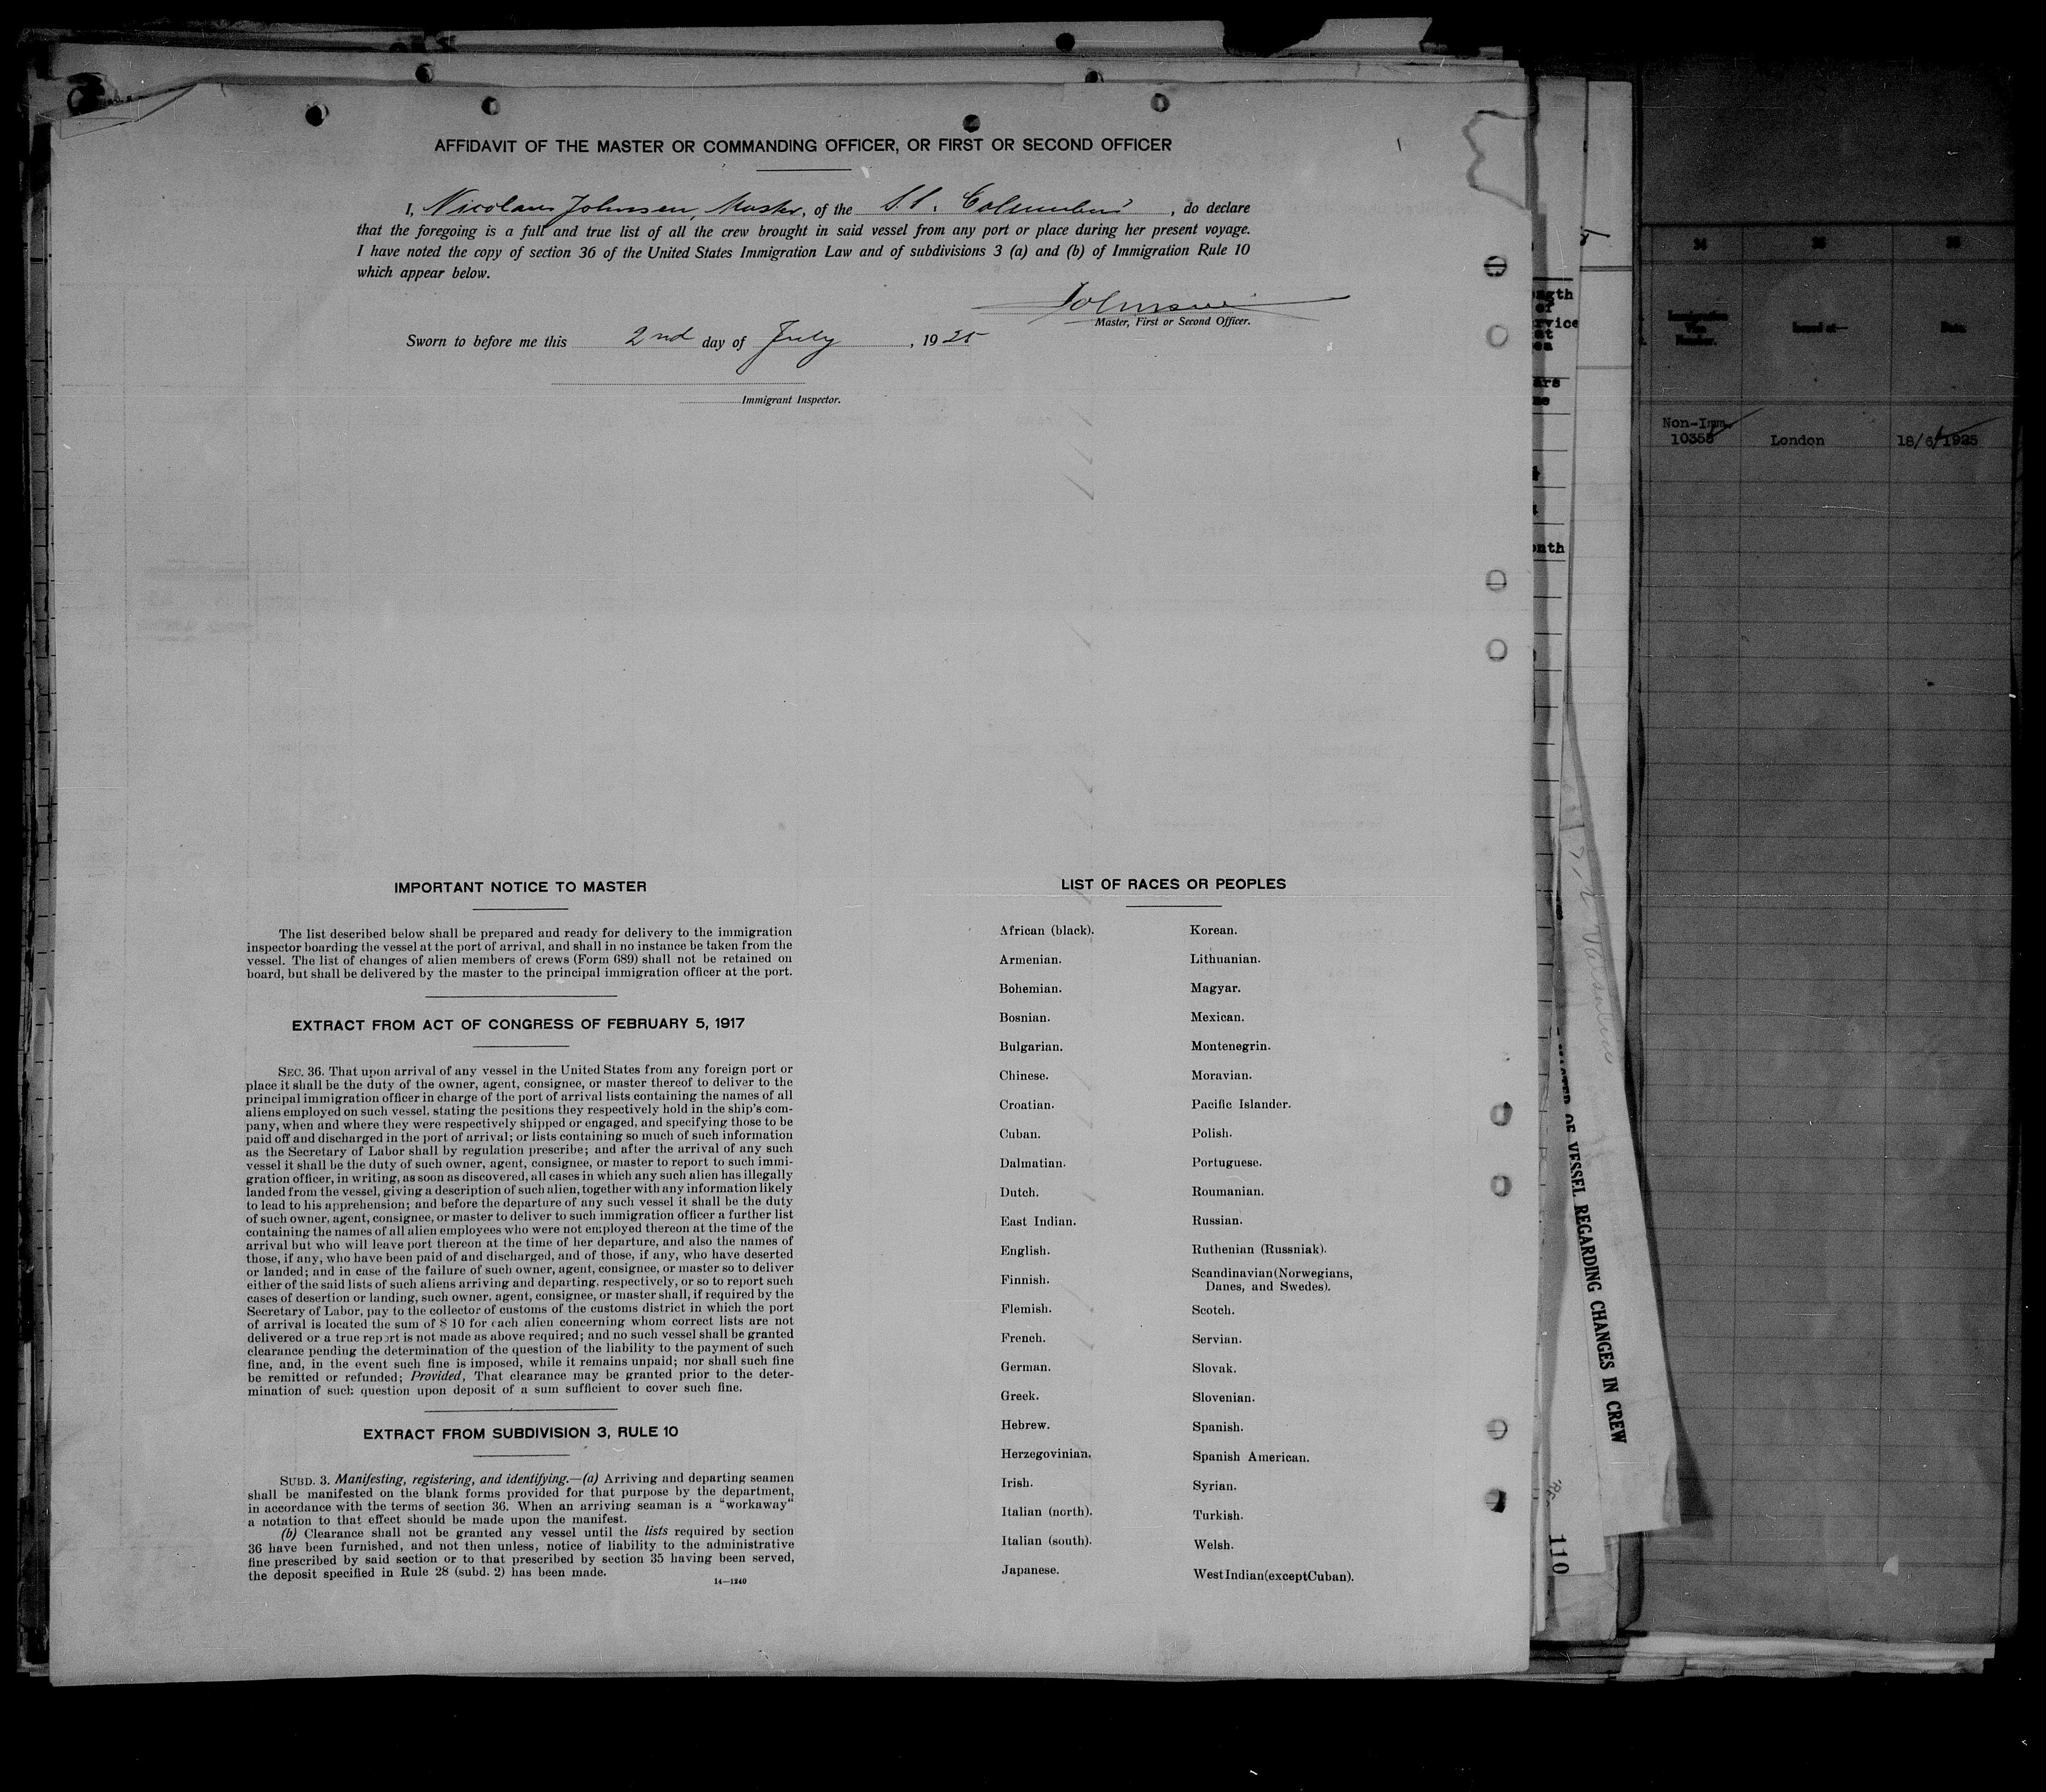 AFFIDAVIT OF THE MASTER OR COMMANDING OFFICER, OR FIRST OR SECOND OFFICER
I, Nicolaus Johnsen, Master, of the S.S. Columbus, do declare
that the foregoing is a full and true list of all the crew brought in said vessel from any port or place during her present voyage.
I have noted the copy of section 36 of the United States Immigration Law and of subdivisions 3 (a) and (b) of Immigration Rule 10
which appear below.
Johnsen
Master, First or Second Officer.
Sworn to before me this 2nd day of July, 1925
Immigrant Inspector.
IMPORTANT NOTICE TO MASTER
The list described below shall be prepared and ready for delivery to the immigration
inspector boarding the vessel at the port of arrival, and shall in no instance be taken from the
vessel. The list of changes of alien members of crews (Form 689) shall not be retained on
board, but shall be delivered by the master to the principal immigration officer at the port.
EXTRACT FROM ACT OF CONGRESS OF FEBRUARY 5, 1917
SEC. 36. That upon arrival of any vessel in the United States from any foreign port or
place it shall be the duty of the owner, agent, consignee, or master thereof to deliver to the
principal immigration officer in charge of the port of arrival lists containing the names of all
aliens employed on such vessel, stating the positions they respectively hold in the ship's com-
pany, when and where they were respectively shipped or engaged, and specifying those to be
paid off and discharged in the port of arrival; or lists containing so much of such information
as the Secretary of Labor shall by regulation prescribe; and after the arrival of any such
vessel it shall be the duty of such owner, agent, consignee, or master to report to such immi-
gration officer, in writing, as soon as discovered, all cases in which any such alien has illegally
landed from the vessel, giving a description of such alien, together with any information likely
to lead to his apprehension; and before the departure of any such vessel it shall be the duty
of such owner, agent, consignee, or master to deliver to such immigration officer a further list
containing the names of all alien employees who were not employed thereon at the time of the
arrival but who will leave port thereon at the time of her departure, and also the names of
those, if any, who have been paid of and discharged, and of those, if any, who have deserted
or landed; and in case of the failure of such owner, agent, consignee, or master so to deliver
either of the said lists of such aliens arriving and departing, respectively, or so to report such
cases of desertion or landing, such owner, agent, consignee, or master shall, if required by the
Secretary of Labor, pay to the collector of customs of the customs district in which the port
of arrival is located the sum of $ 10 for each alien concerning whom correct lists are not
delivered or a true report is not made as above required; and no such vessel shall be granted
clearance pending the determination of the question of the liability to the payment of such
fine, and, in the event such fine is imposed, while it remains unpaid; nor shall such fine
be remitted or refunded; Provided, That clearance may be granted prior to the deter-
mination of such question upon deposit of a sum sufficient to cover such fine.
EXTRACT FROM SUBDIVISION 3, RULE 10
SUBD. 3. Manifesting, registering, and identifying.—(a) Arriving and departing seamen
shall be manifested on the blank forms provided for that purpose by the department,
in accordance with the terms of section 36. When an arriving seaman is a "workaway"
a notation to that effect should be made upon the manifest.
(b) Clearance shall not be granted any vessel until the lists required by section
36 have been furnished, and not then unless, notice of liability to the administrative
fine prescribed by said section or to that prescribed by section 35 having been served,
the deposit specified in Rule 28 (subd. 2) has been made.
14—1240
LIST OF RACES OR PEOPLES
African (black).
Armenian.
Bohemian.
Bosnian.
Bulgarian.
Chinese.
Croatian.
Cuban.
Dalmatian.
Dutch.
East Indian.
English.
Finnish.
Flemish.
French.
German.
Greek.
Hebrew.
Herzegovinian.
Irish.
Italian (north).
Italian (south).
Japanese.
Korean.
Lithuanian.
Magyar.
Mexican.
Montenegrin.
Moravian.
Pacific Islander.
Polish.
Portuguese.
Roumanian.
Russian.
Ruthenian (Russniak).
Scandinavian (Norwegians,
Danes, and Swedes).
Scotch.
Servian.
Slovak.
Slovenian.
Spanish.
Spanish American.
Syrian.
Turkish.
Welsh.
West Indian (except Cuban).
OF VESSEL REGARDING CHANGES IN CREW
110
34
35
36
Immigration
Visa
Number.
Issued at—
Date.
Non-Imm.
London
18/6/1925